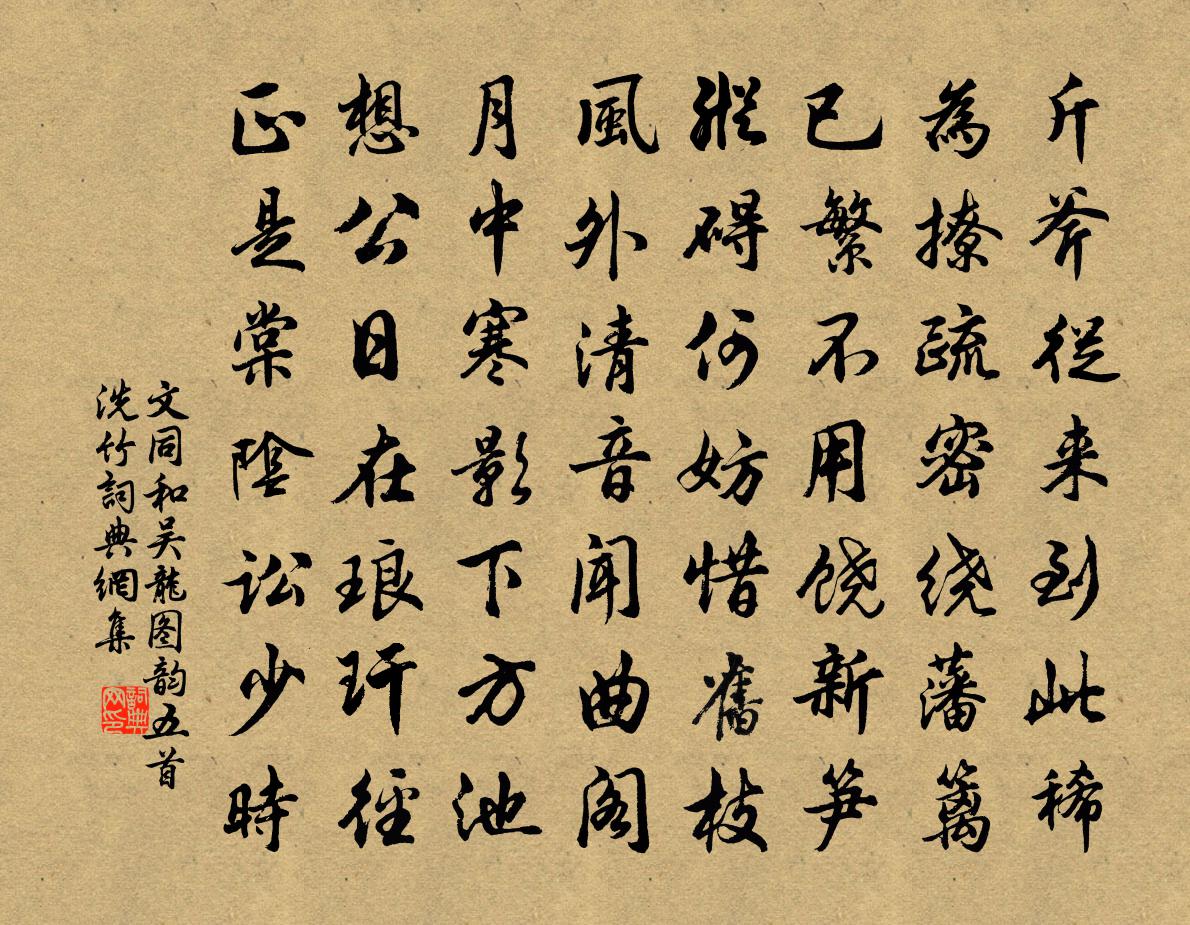 斤斧從来到此稀
為撩疏密绕藩篱
已繁不用饶新笋
縱碍何妨惜舊枝
風外清音聞曲阁
月中寒影下方池
想公日在琅玕径
正是棠陰訟少時
文同和吴龍图韵五首
洗竹詞典網集
詞典网印